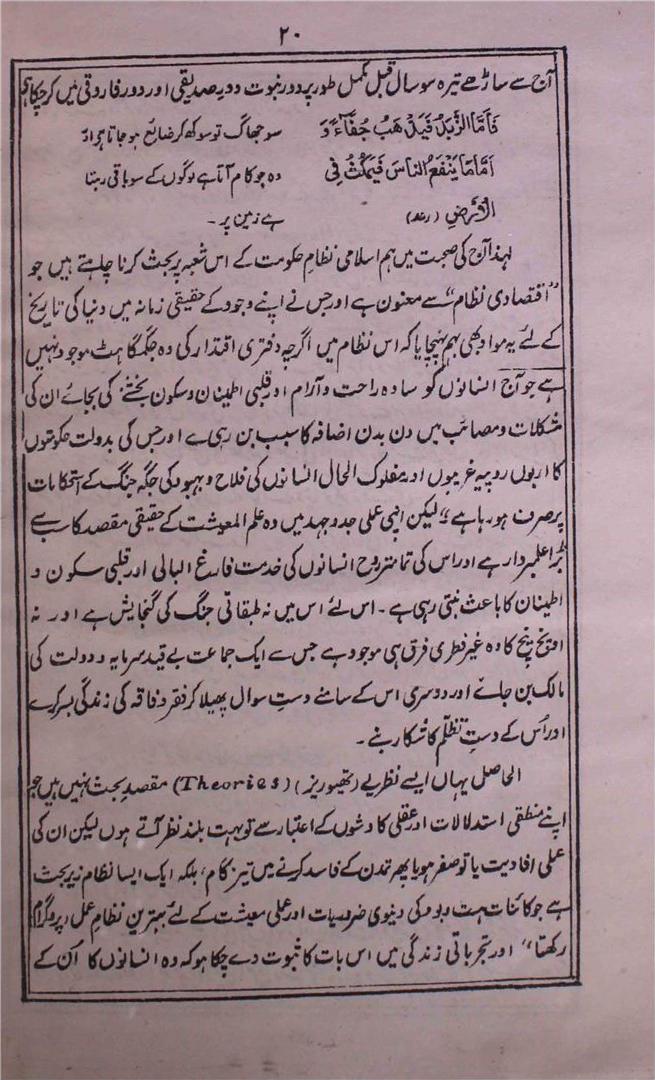 ۲۰
آج سے ساڑھے تیرہ سو سال قبل مکمل طور پر دور نبوت دورِ صدیقی اور دور فاروقی میں کر چکا ہے
فَاَمَّا الزَّبَدُ فَیَذْهَبُ جُفَآءً وَ سو جھاگ تو سوکھ کر ضائع ہو جاتا ہے اور
اَمَّا مَا یَنْفَعُ النَّاسَ فَیَمْکُثُ فِی وہ جو کام آتا ہے لوگوں کے سو باقی رہتا
الْاَرْضِ (رعد) ہے زمین پر۔
لہذا آج کی صحبت میں ہم اسلامی نظامِ حکومت کے اس شعبہ پر بحث کرنا چاہتے ہیں جو
"اقتصادی نظام" سے معنون ہے اور جس نے اپنے وجود کے حقیقی زمانہ میں دنیا کی تاریخ
کے لئے یہ مواد بھی بہم پہنچایا کہ اس نظام میں اگرچہ دفتری اقتدار کی وہ جگمگاہٹ موجود نہیں
ہے جو آج انسانوں کو سادہ راحت و آرام اور قلبی اطمینان و سکون بخشنے کی بجائے ان کی
مشکلات و مصائب میں دن بدن اضافہ کا سبب بن رہی ہے اور جس کی بدولت حکومتوں
کا اربوں روپیہ غریبوں اور مفلوک الحال انسانوں کی فلاح و بہبود کی جگہ جنگ کے استحکامات
پر صرف ہو رہا ہے" لیکن اپنی عملی جدوجہد میں وہ علم المعیشت کے حقیقی مقصد کا سب سے
بڑا علمبردار ہے اور اس کی تمامتر روح انسانوں کی خدمت فارغ البالی اور قلبی سکون و
اطینان کا باعث بنتی رہی ہے۔ اس لئے اس میں نہ طبقاتی جنگ کی گنجایش ہے اور نہ
اونچ نیچ کا وہ غیر فطری فرق ہی موجود ہے جس سے ایک جماعت بے قید سرمایہ و دولت کی
مالک بن جائے اور دوسری اس کے سامنے دستِ سوال پھیلا کر فقر و فاقہ کی زندگی بسر کرے
اور اُس کے دستِ تظلّم کا شکار بنے۔
الحاصل یہاں ایسے نظریے (تھیوریز) (Theories) مقصدِ بحث نہیں ہیں جو
اپنے منطقی استدلالات اور عقلی کاوشوں کے اعتبار سے تو بہت بلند نظر آتے ہوں لیکن ان کی
عملی افادیت یا تو صفر ہو یا پھر تمدن کے فاسد کرنے میں تیز گام، بلکہ ایک ایسا نظام زیرِ بحث
ہے جو کائنات ہست و بود کی دینوی ضروریات اور عملی معیشت کے لئے بہترین نظام عمل "پروگرام
رکھتا" اور تجرباتی زندگی میں اس بات کا ثبوت دے چکا ہو کہ وہ انسانوں کا اُن کے